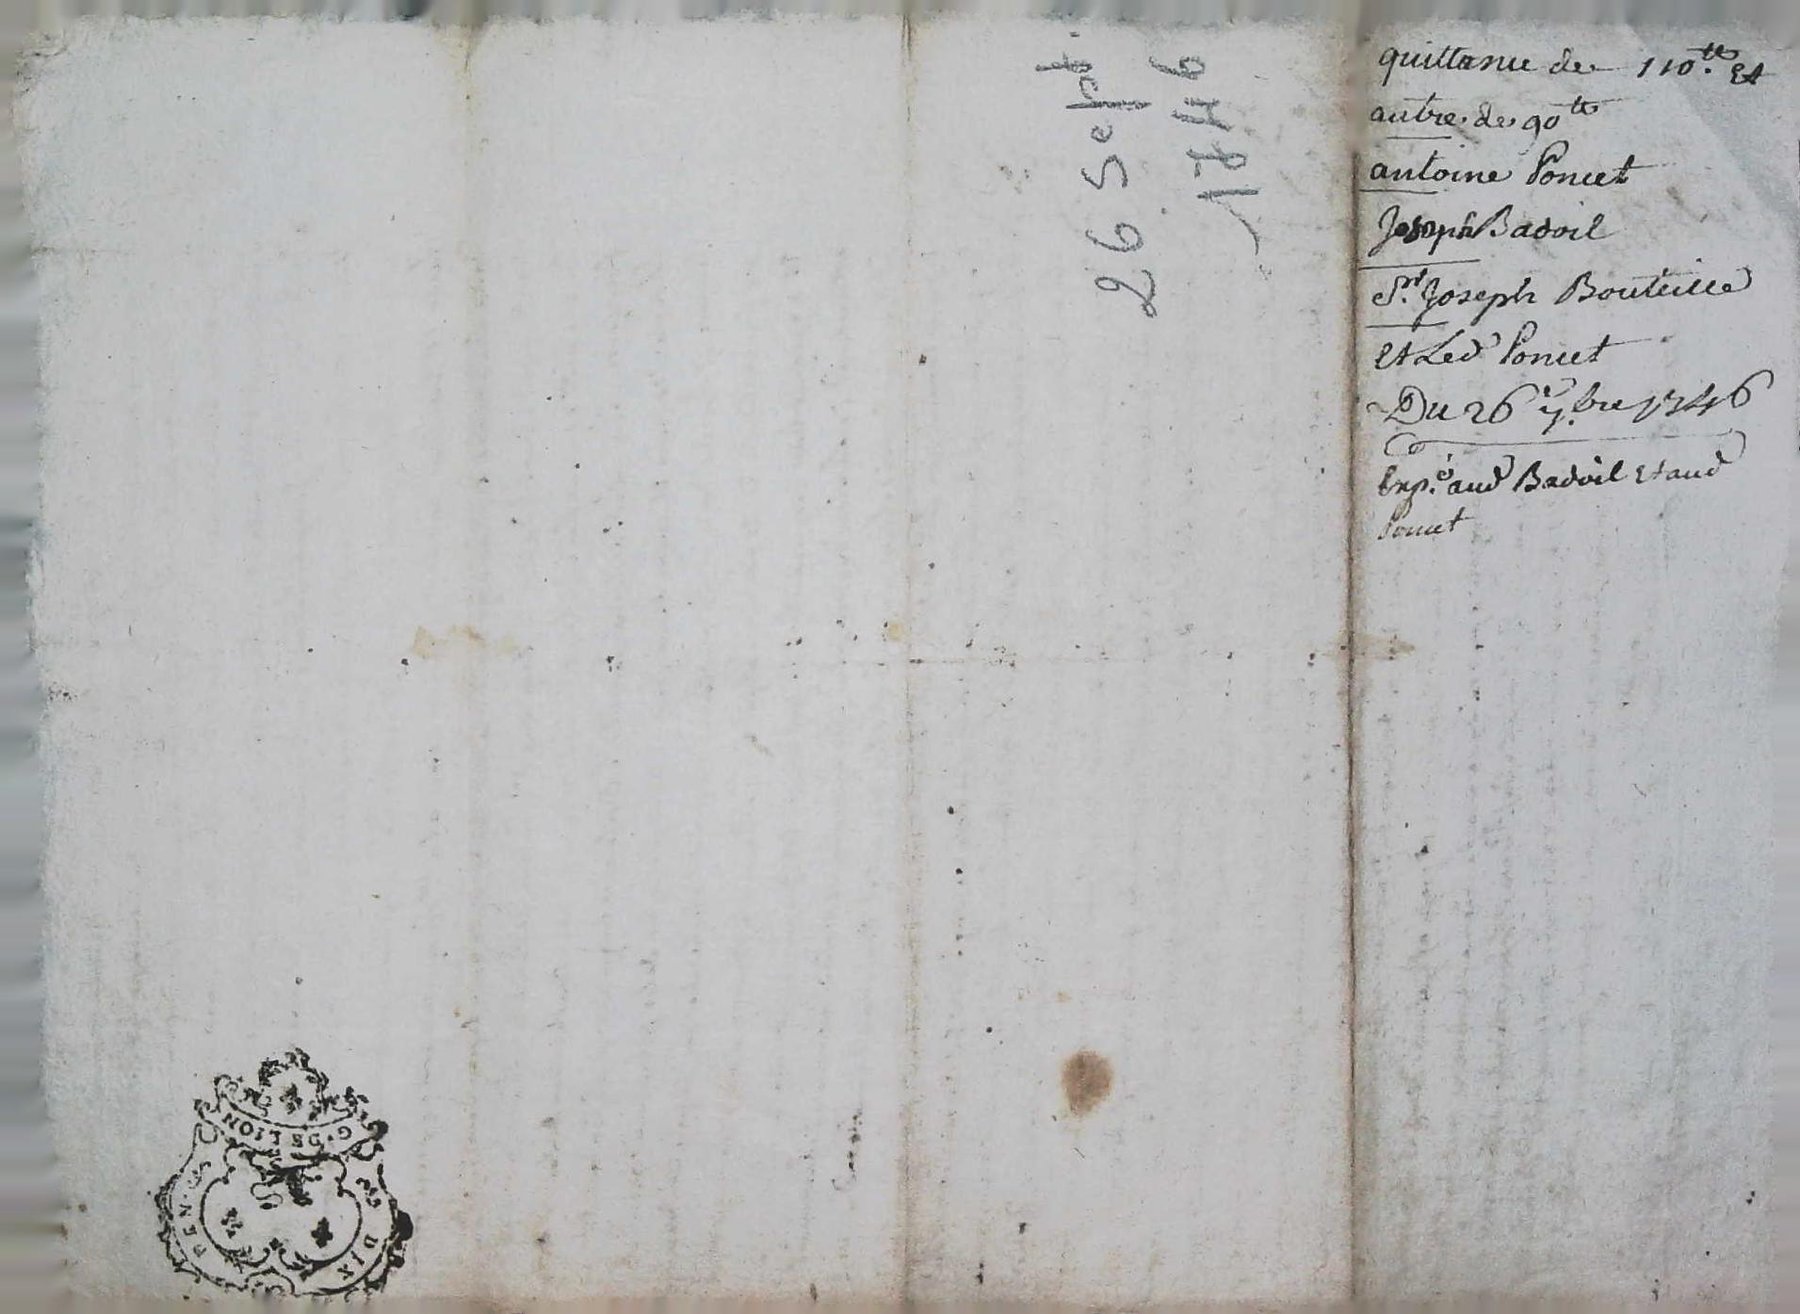 quittance de 110.tt Et
autre de 90tt
antoine Poncet
Joseph Badoil
Sr. Joseph Bouteille
Et Led Poncet
Du 26e 7.bre 1746
Exp.é aud Badoil Et aud
Poncet
26 Sept.
1746
G. DE LION
DIX
DEN.